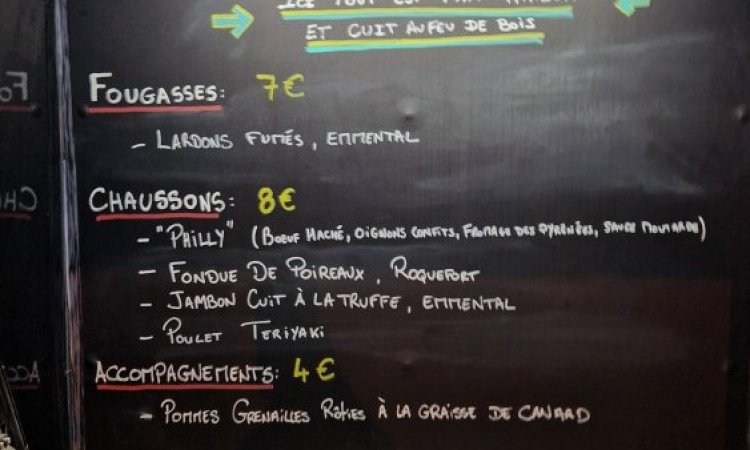 ICI TOUT EST FAIT MAISON
ET CUIT AU FEU DE BOIS
FOUGASSES: 7€
- LARDONS FUMÉS, EMMENTAL
CHAUSSONS: 8€
- "PHILLY" (BOEUF HACHÉ, OIGNONS CONFITS, FROMAGE DES PYRÉNÉES, SAUCE MOUTARDE)
- FONDUE DE POIREAUX, ROQUEFORT
- JAMBON CUIT À LA TRUFFE, EMMENTAL
- POULET TERIYAKI
ACCOMPAGNEMENTS: 4€
- POMMES GRENAILLES R�ôTIES À LA GRAISSE DE CANARD